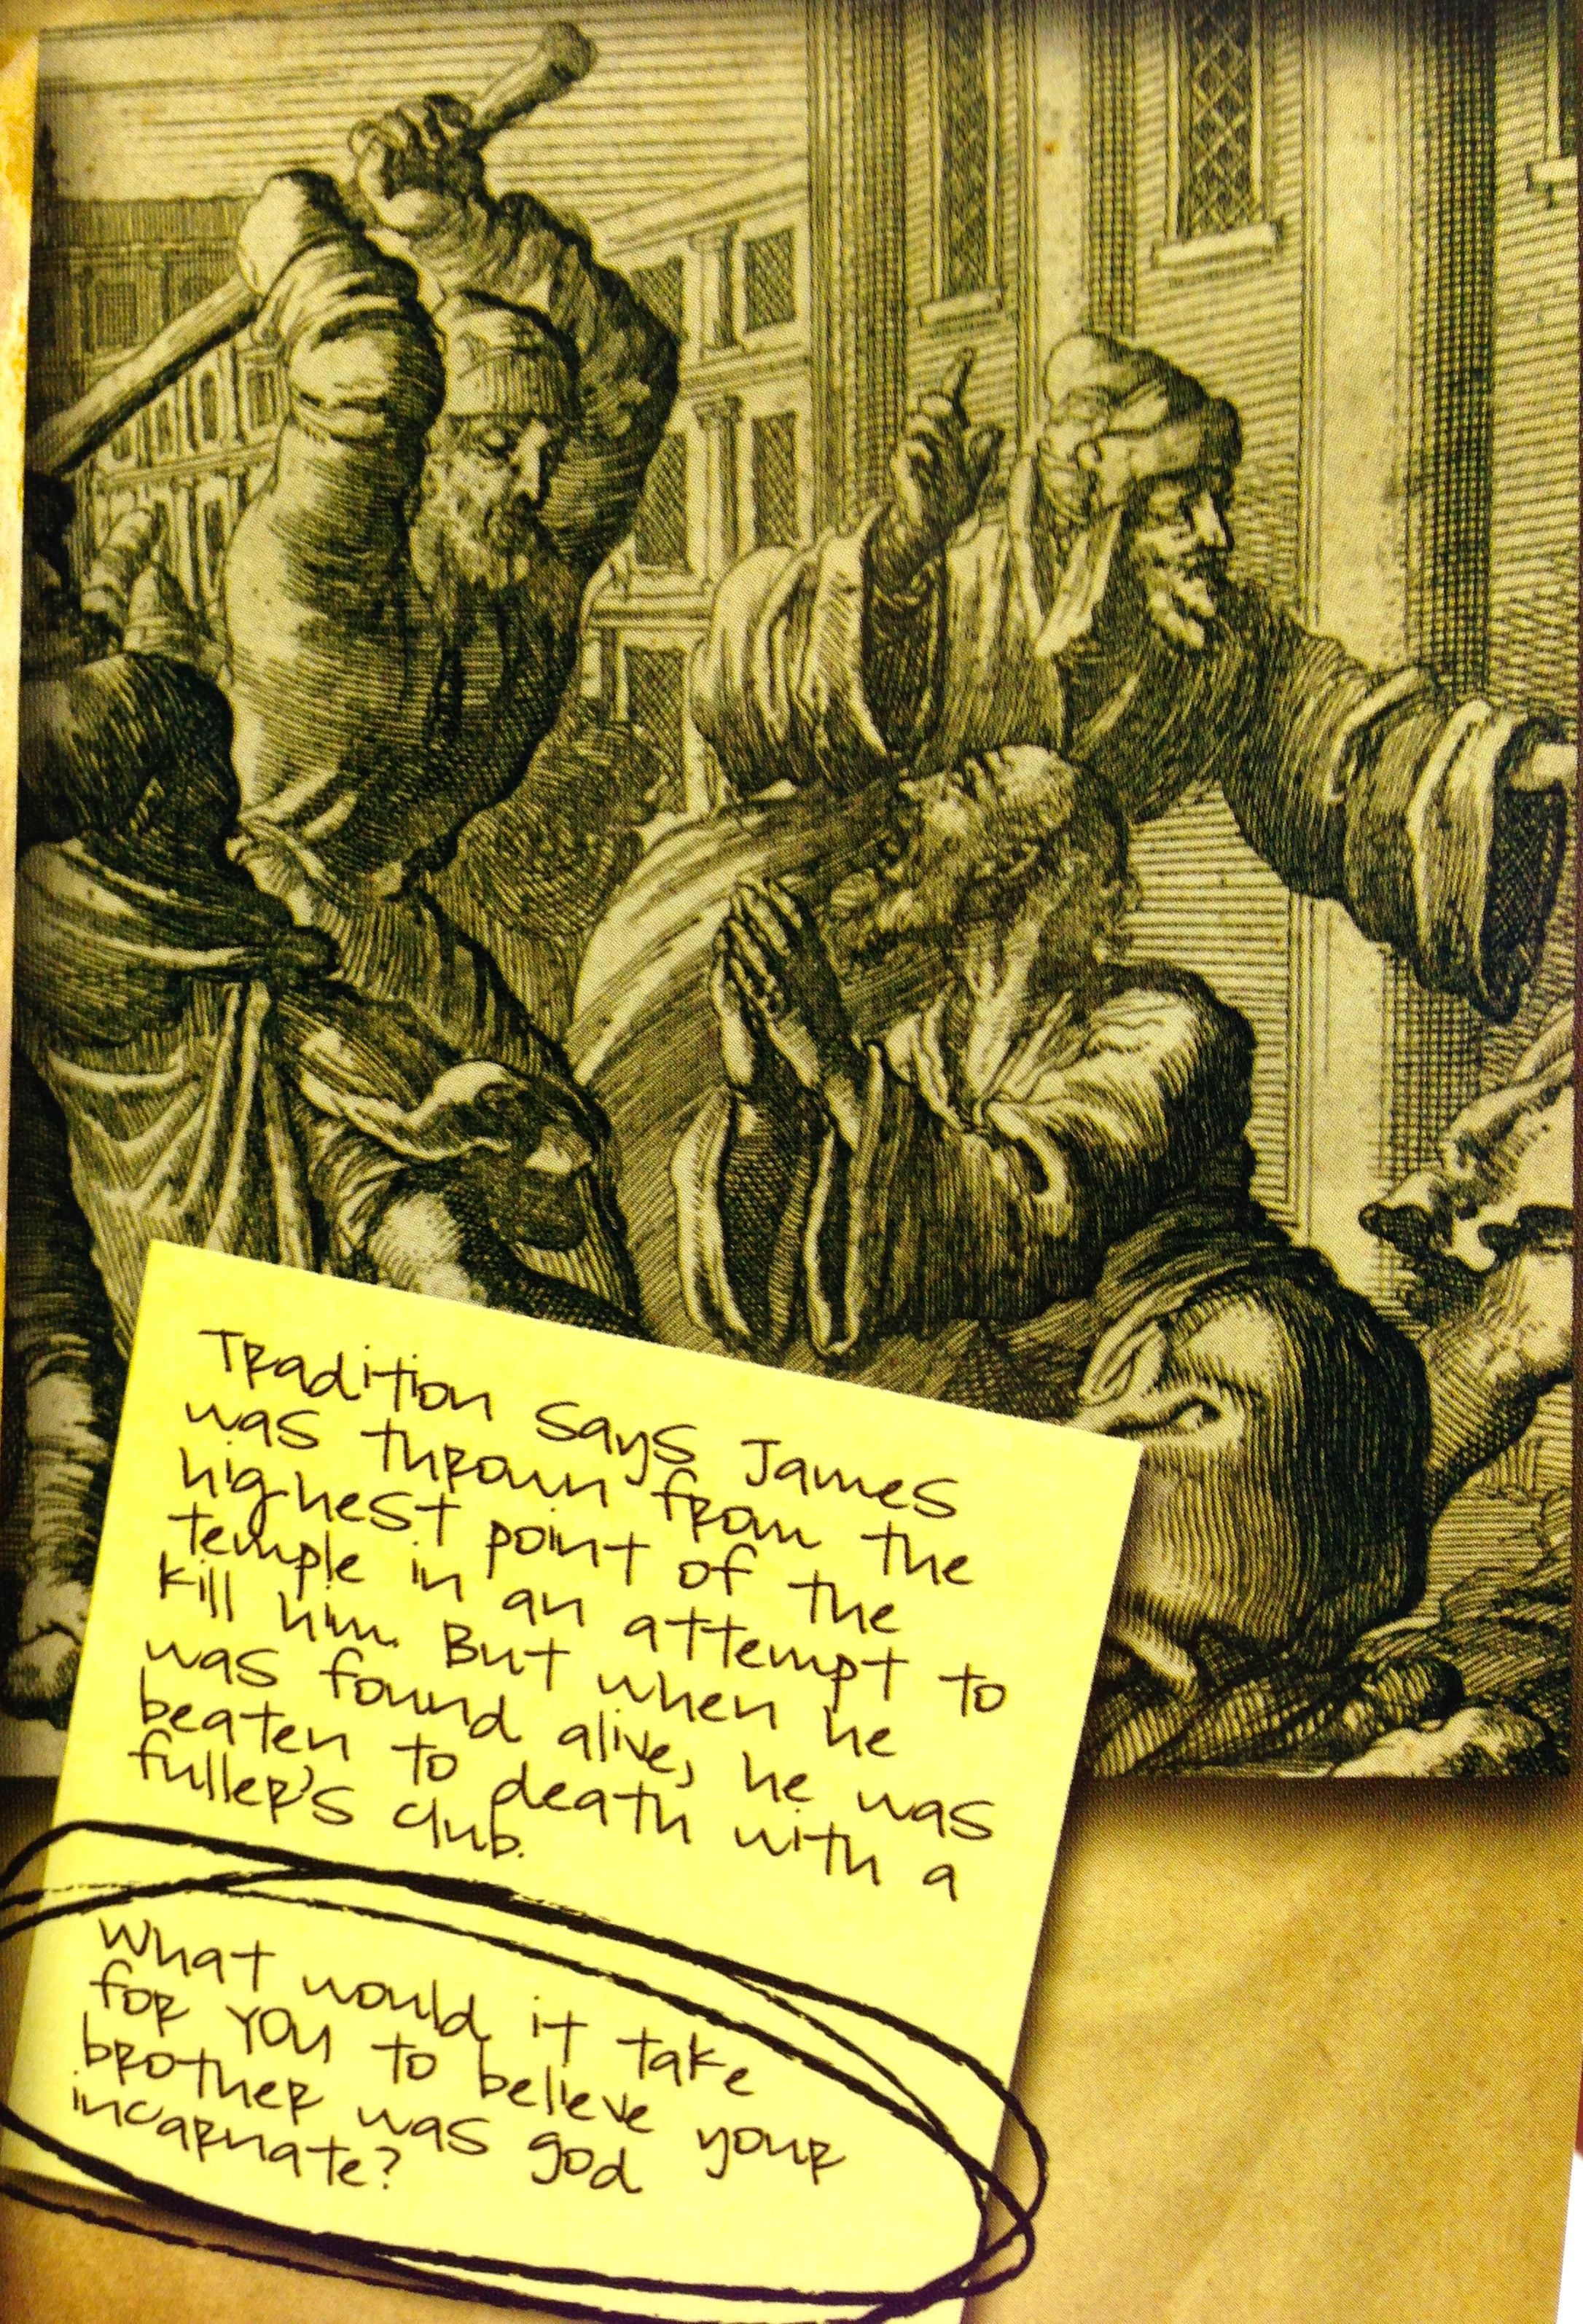 Tradition says James
was thrown from the
highest point of the
temple in an attempt to
kill him. But when he
was found alive, he was
beaten to death with a
fuller's club.
What would it take
for YOU to believe your
brother was god
incarnate?